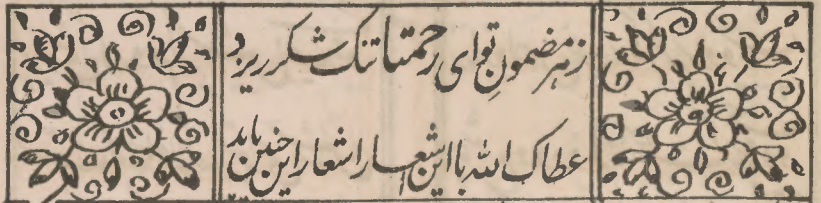 زهر مضمونِ تو ای رحمتا تنگ شکر ریزد
عطاک الله با این اشعار اشعار این چنین باید